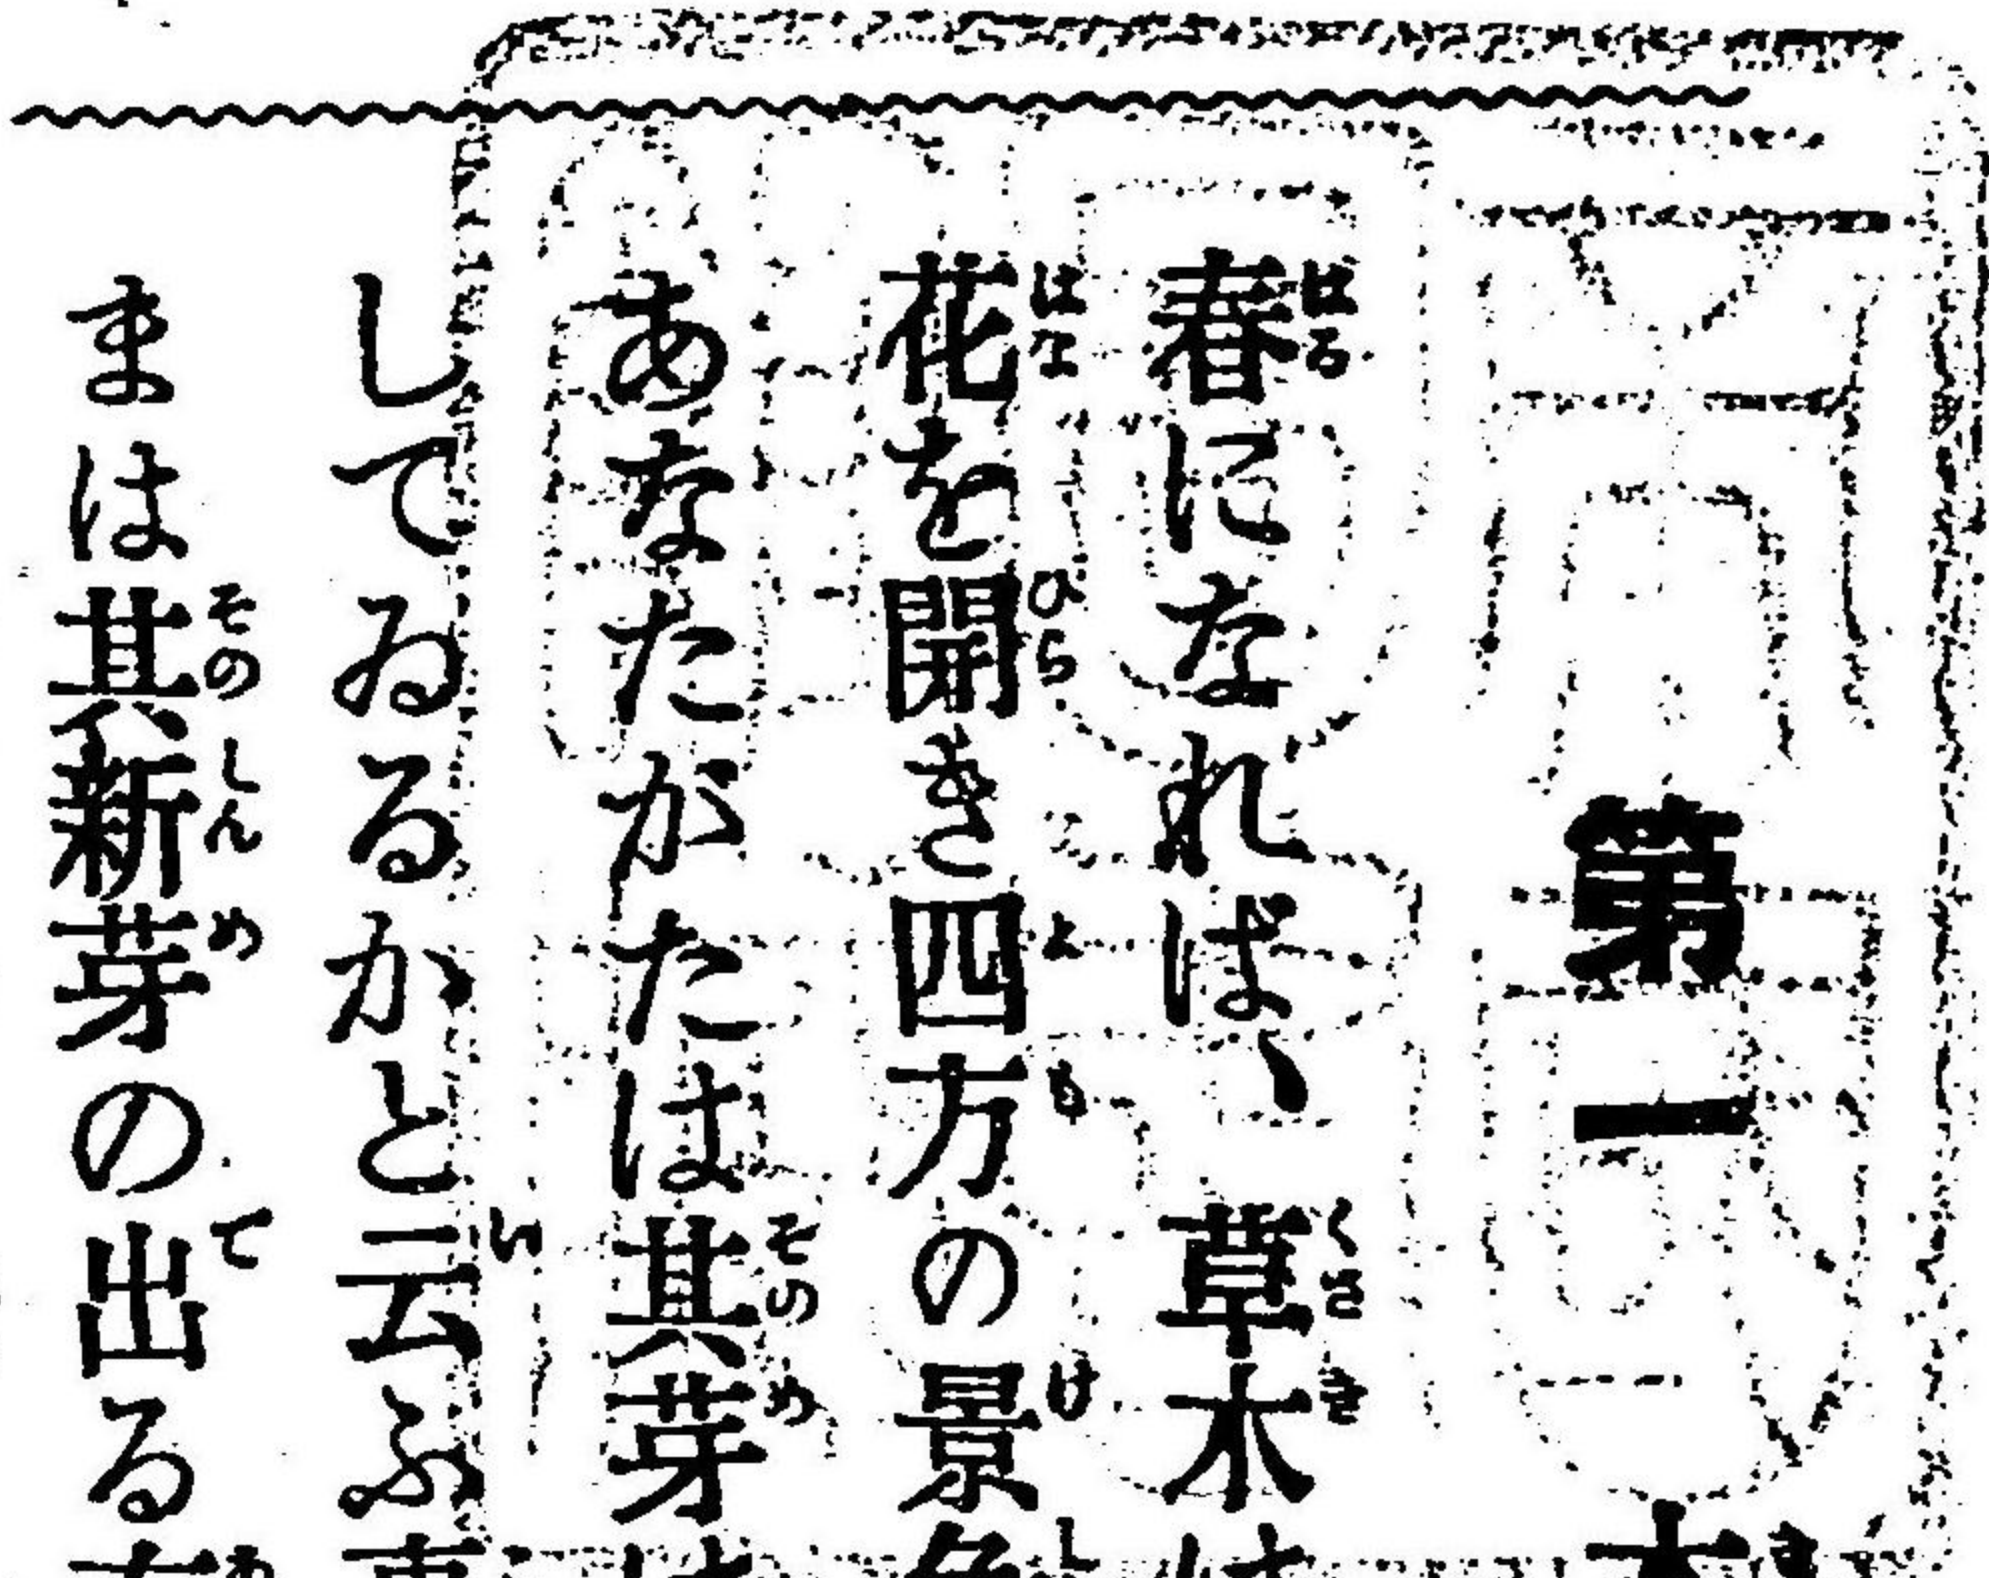 第一
春になれば、草木
花を開き四方の景色
あなたがたは其芽は
してゐるかと云ふ事
まは其新芽の出る